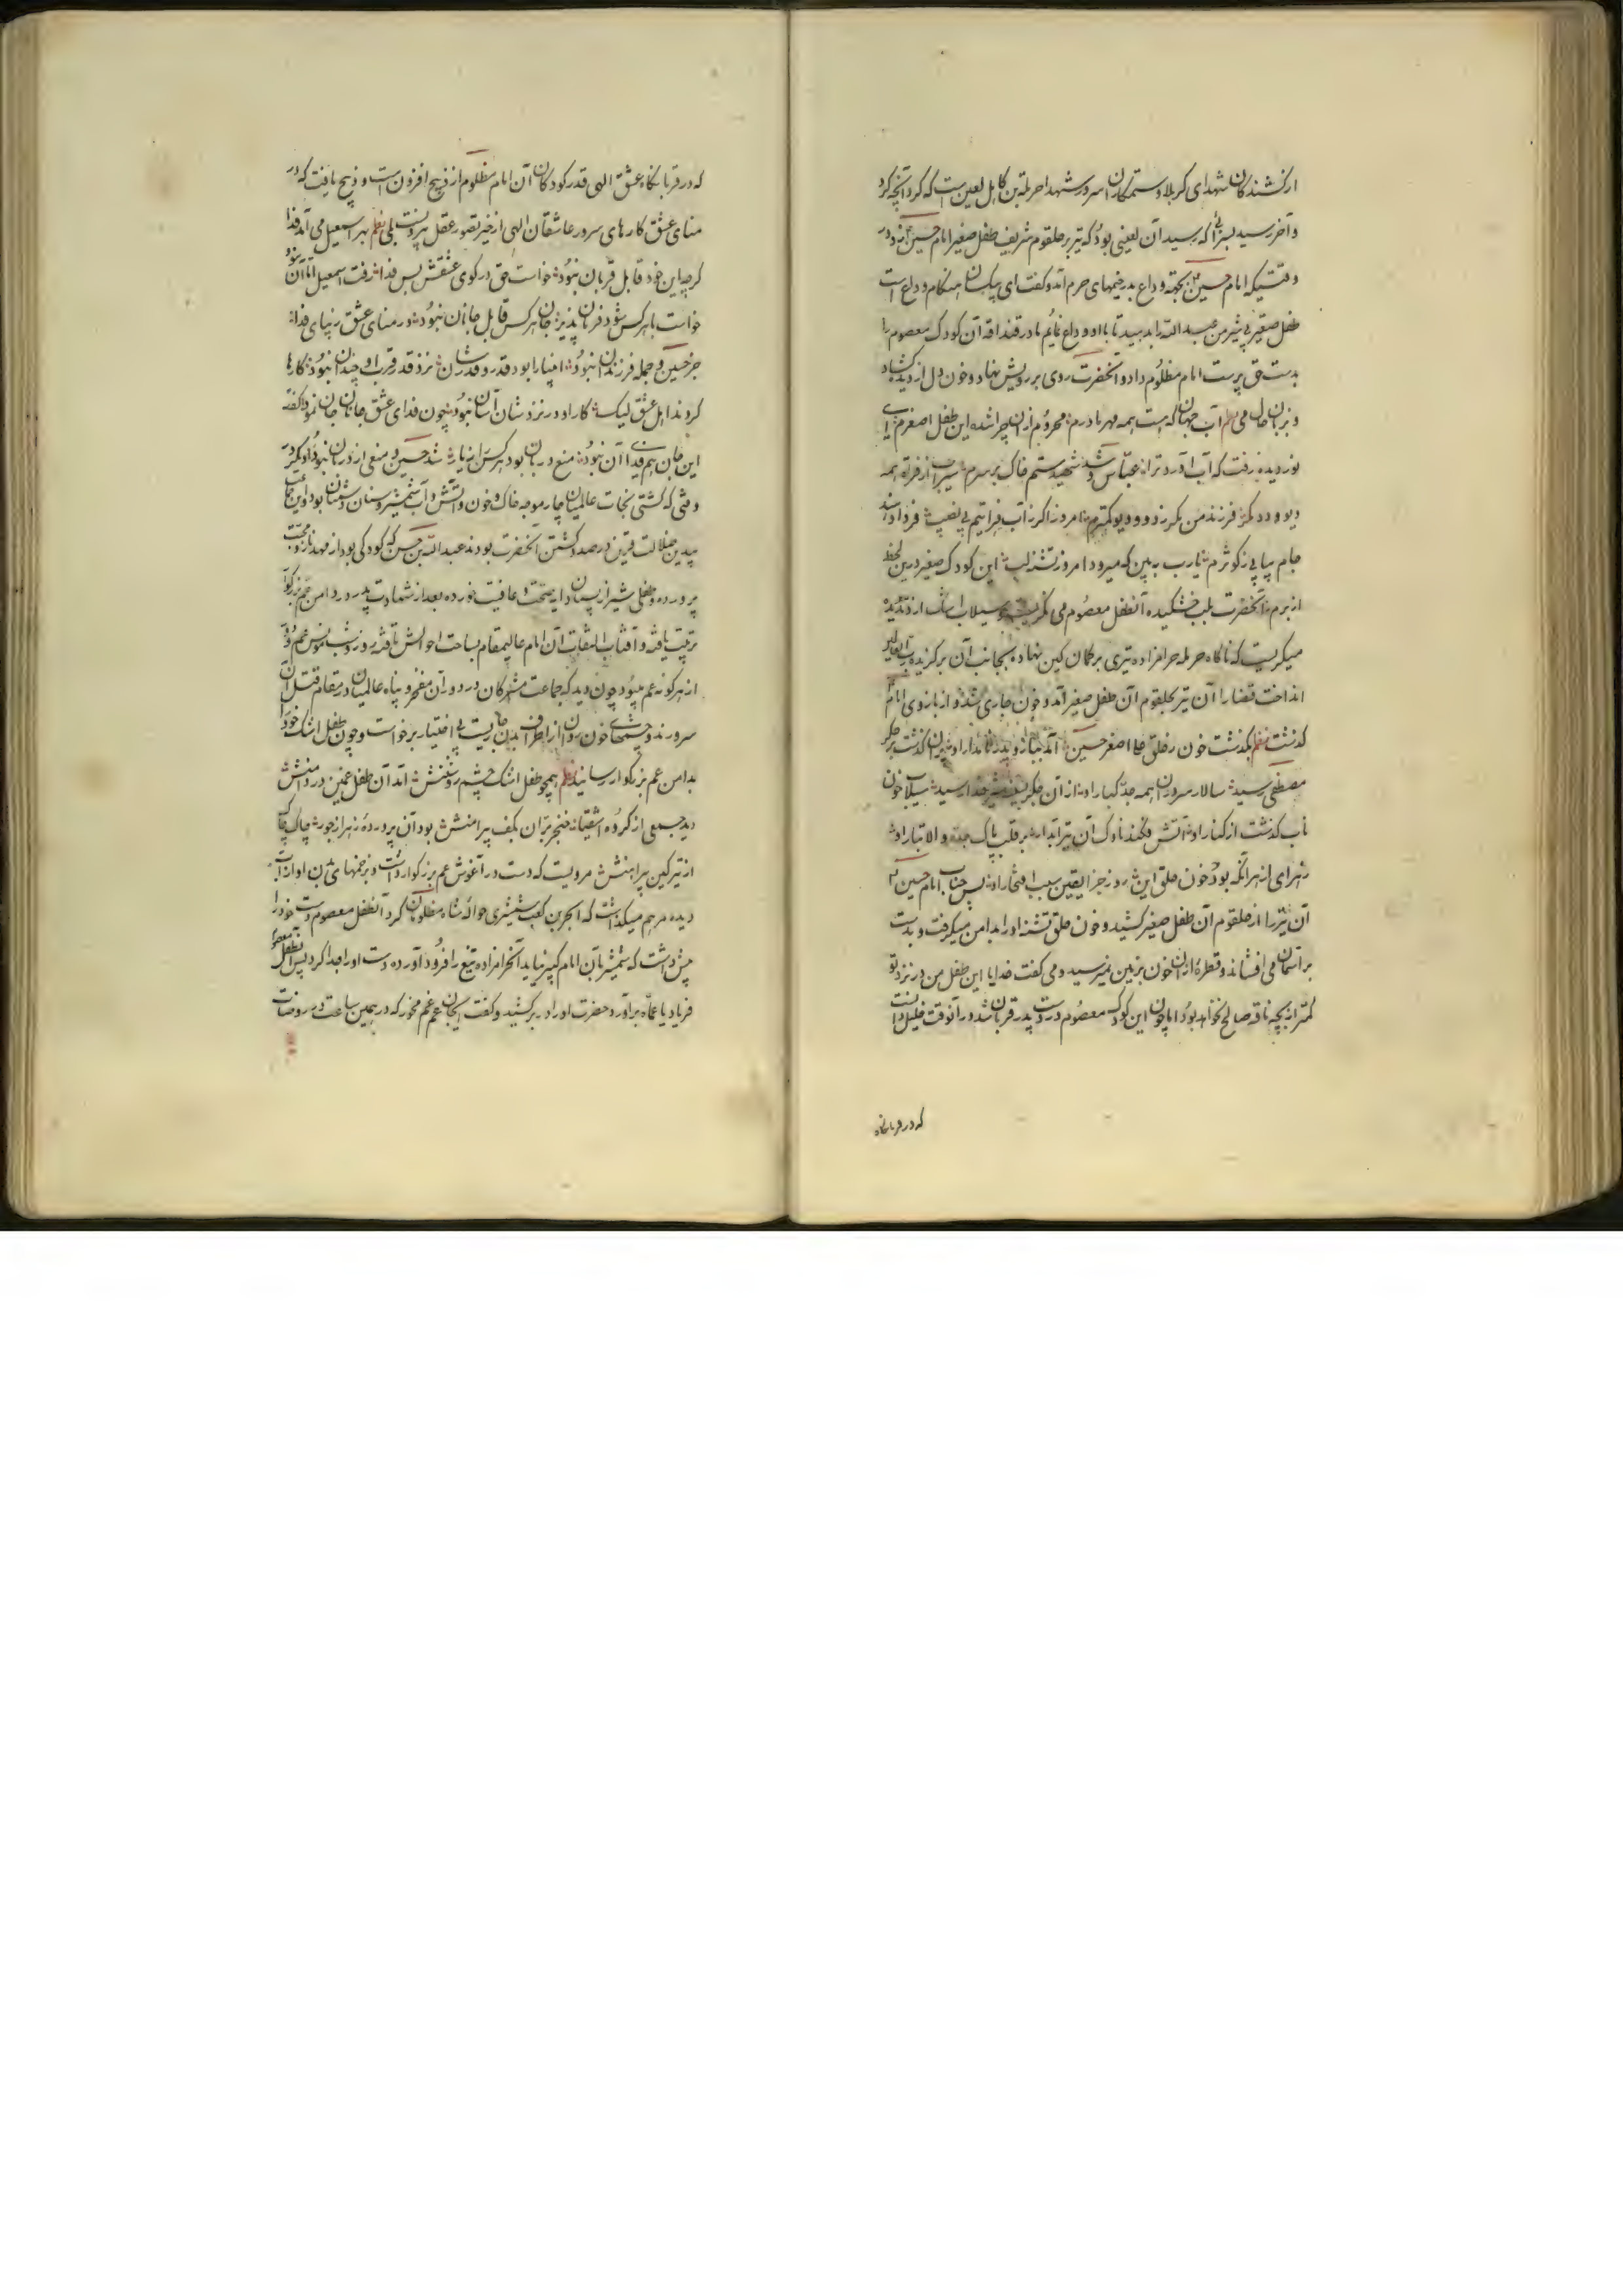 از کشندکان شهدای کربلا و ستمکاران سرور شهدا حرملة بن کاهل لعین است که کرد آنچه کرد
و آخر رسید بسزا که رسید آن لعینی بود که تیر بر حلقوم شریف طفل صغیر امام حسین زد در
وقتیکه امام حسین بجهة وداع بدر خیمهای حرم آمد و کفت ای بیکسان هنکام وداع است
طفل صغیر بی شیر من عبد الله را بدهید تا با او وداع نمایم مادر قنداقه آن کودک معصوم را
بدست حق پرست امام مظلوم داد و آنحضرت روی بر رویش نهاد و خون دل از دیده کشاد
و بزبان حال می آب جهان که هست همه مهر مادرم محروم ازان چرا شده این طفل اصغرم ای
نور دیده رفت که آب آورد ترا عباس و شد شهید ستم خاک بر سرم سیراب از فراة همه
دیو و دد مکر فرزند من مکر ز دد و دیو کمترم امروز اکر ز آب فراتیم بی نصیب فردا دهند
جام پیاپی ز کوثرم یا رب ببین که میرود امروز تشنه لب این کودک صغیر درین لحظه
از برم آنحضرت بلب خشکیده آنطفل معصوم می نکریست و سیلاب اشک از دیده
میکریست که ناکاه حرمله حرامزاده تیری بر کمان کین نهاده بجانب آن برکزیده
انداخت قضا را آن تیر بحلقوم آن طفل صغیر آمد و خون جاری شد و از بازوی امام
کذشت نظم بکذشت خون ز حلق علی اصغر حسین آمد ببازوی پدر نامدار او پیکان کذشت بر جکر
مصطفی رسید سالار سروران همه جد کبار او از آن جکر بسینه شیر خدا رسید سیلاب خون
ناب کذشت از کنار او آتش فکند ناوک آن تیر آبدار بر قلب پاک جده والا تبار او
زهرای ازهر آنکه بود خون حلق این روز جزا یقین سبب افتخار او پس جناب امام حسین
آن تیر را از حلقوم آن طفل صغیر کشید و خون حلق تشنه او را بدامن میکرفت و بدست
بر آسمان می افشاند و قطرهٔ ازان خون بزمین نمیرسید و می کفت خدایا این طفل من در نزد تو
کمتر از بچه ناقه صالح نخواهد بود اما چون این کودک معصوم در دست پدر قربان شد در آنوقت خلیل دانست
که در قربانکاه
که در قربانکاه عشق الهی قدر کودکان آن امام مظلوم از ذبیح افزون است و ذبیح یافت که در
منای عشق کارهای سرور عاشقان الهی از خیر تصور عقل بیرونست بلی نظم بهر اسمعیل می آمد فدا
کرچه این خود قابل قربان نبود خواست حق در کوی عشقش بس فدا رفت اسمعیل اما آن نبود
خواست با هر کس شود فرمان پذیر جان هر کس قابل جانان نبود در منای عشق زیبای فدا
جز حسین و جمله فرزندان نبود انبیا را بود قدر و قدرشان نزد قدر قرب او چندان نبود کارها
کردند اهل عشق لیک کار او در نزدشان آسان نبود چون فدای عشق جانان جان نمود کفته
این جان هم فدا آن نبود منع دربان بود هر کس را نیاز شد حسین و منعی از دربان نبود
وقتی که کشتی نجات عالمیان چار موجه خاک و خون و آتش و آب شمشیر و سنان دشمنان بود و این جماعت
بیدین ضلالت قرین در صدد کشتن آنحضرت بودند عبد الله بن حسن که کودکی بود از مهد ناز و محبت
پرورده و طفلی شیر از پستان دایه صحت و عافیت خورده بعد از شهادت پدر در دامن عم بزرکوار
تربیت یافته و آفتاب التفات آن امام عالیمقام بساحت احوالش تافته روز و شب مونس عم و
از هرکونه غم میبود چون دید که جماعت مشرکان در دور آن مفخر و پناه عالمیان در مقام قتل آن
سرورند و چشمهای خون روان از اطراف بدن جاریست بی اختیار برخواست و چون طفل اشک خود را
بدامن عم بزرکوار رسانید نظم همچو طفل اشک چشم روشنش آمد آن طفل غمین در دامنش
دید جمعی از کروه اشقیا خنجر بران بکف پیرامنش بود آن پروردهٔ زهرا ز جور چاک چاک
از تیر کین پیراهنش مرویست که دست در آغوش عم بزرکوار داشت و بزخمهای بدن او از آب
دیده مرهم میکذاشت که ابجر بن کعب شمشیری حواله شاه مظلومان کرد آنطفل معصوم دست خود را
پیش داشت که شمشیر بآن امام کبیر نیاید آنحرامزاده تیغ را فرود آورده دست او را جدا کرد پس آنطفل معصوم
فریاد یا عماه برآورد حضرت او را در بر کشید و کفت ایجان عم غم مخور که در همین ساعت در روضات